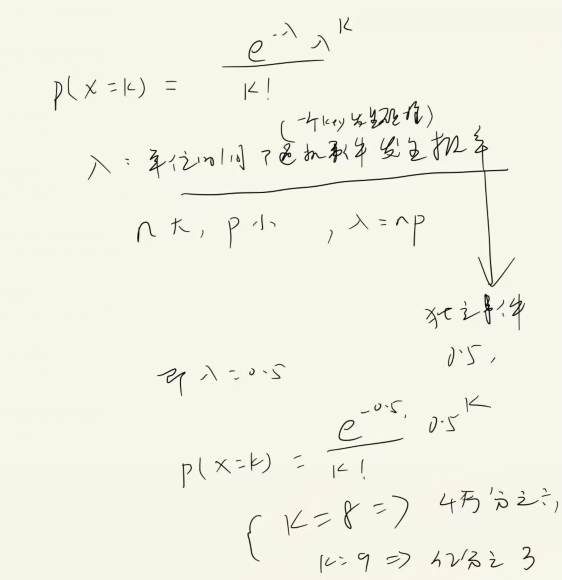 p(x=k) = e^-λ λ^k / k!
(一个key发生碰撞)
λ：单位时间 随机事件发生概率
n 大, p 小 , λ=np
独立事件
0.5,
即 λ=0.5
p(x=k) = e^-0.5 / k! 0.5^k
{ k=8 =>
k=9 => 亿分之 3